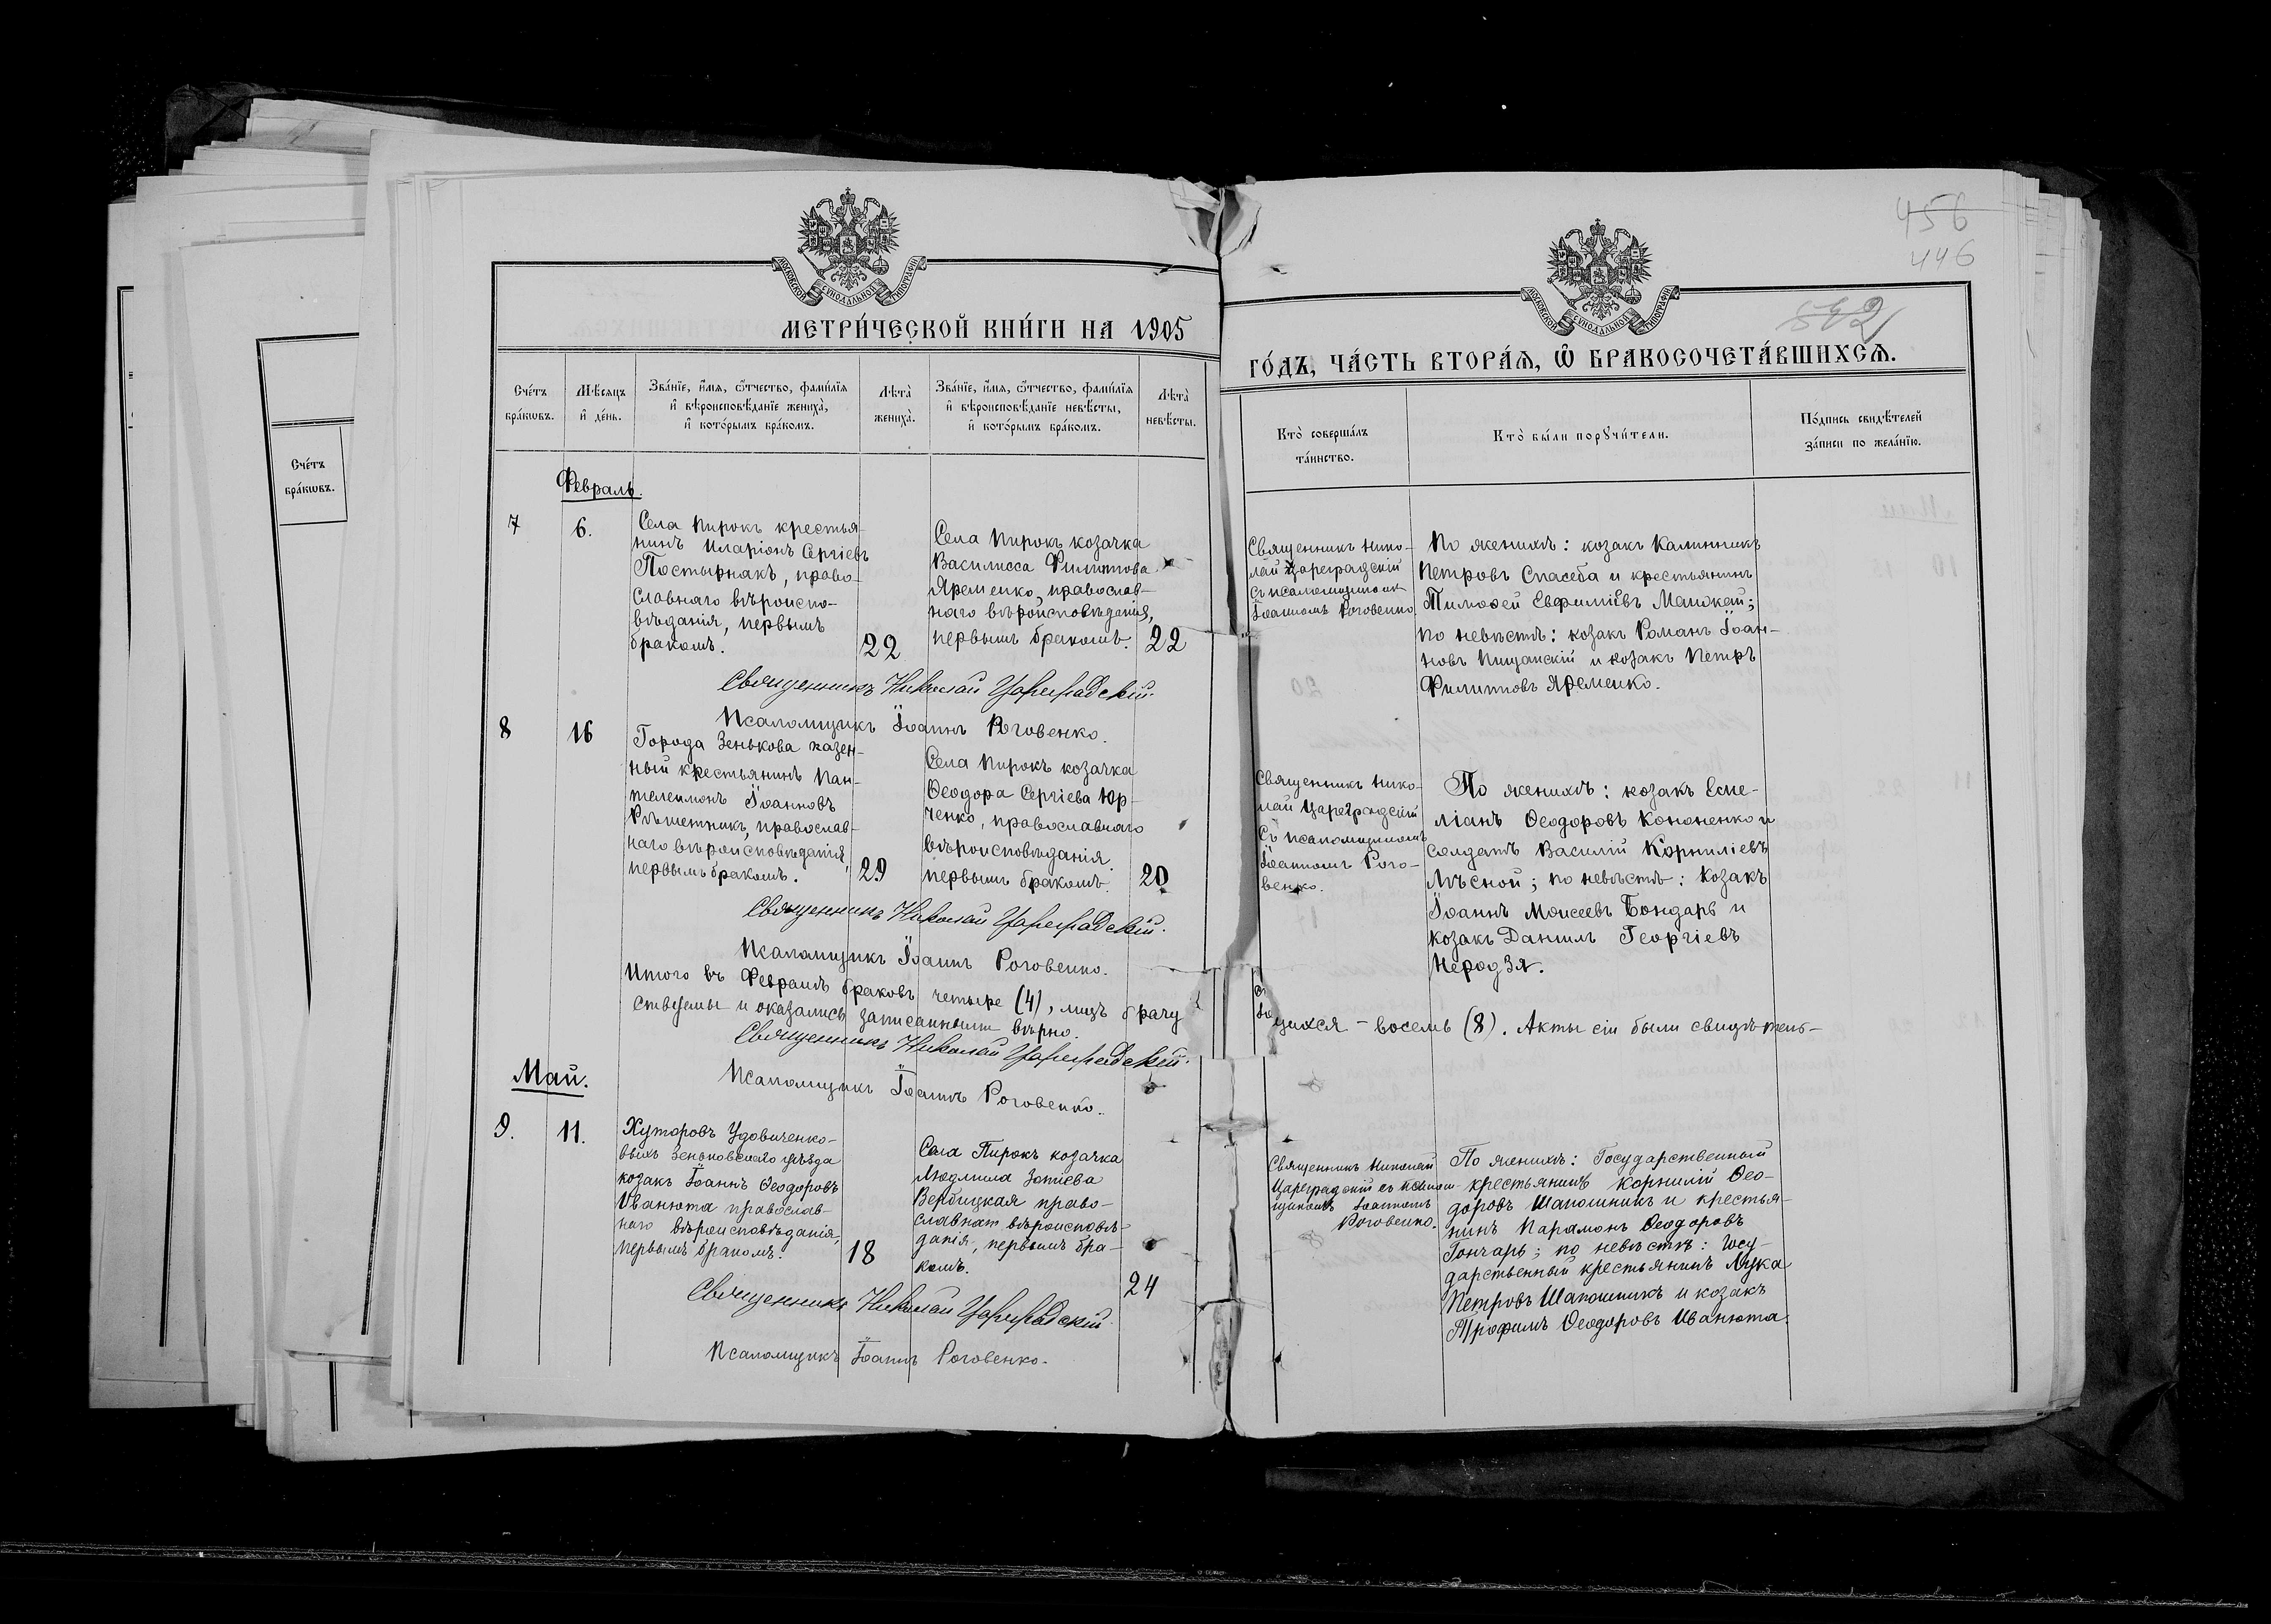 456
446
542
МОСКОВСКОЙ СѴНОДАЛЬНОЙ ТИПОГРАФІИ
МОСКОВСКОЙ СѴНОДАЛЬНОЙ ТИПОГРАФІИ
МЕТРИ́ЧЕСКОЙ КНИ́ГИ НА 1905
ГО́ДЪ, ЧА́СТЬ ВТОРА́Я, Ѡ БРАКОСОЧЕТА́ВШИХСЯ.
Сче́тъ
бра́кѡвъ.
Сче́тъ
бра́кѡвъ.
Мѣ́сяцъ
и҆ де́нь.
Зва́нїе, и҆́мя, ѻ҆́тчество, фами́лїя
и҆ вѣроисповѣ́данїе жениха̀,
и҆ кото́рымъ бра́комъ.
Лѣта̀
жениха̀.
Зва́нїе, и҆́мя, ѻ҆́тчество, фами́лїя
и҆ вѣроисповѣ́данїе невѣ́сты,
и҆ кото́рымъ бра́комъ.
Лѣта̀
невѣ́сты.
Кто̀ соверша́лъ
та́инство.
Кто̀ бы́ли порꙋчи́тели.
По́дпись свидѣ́телей
за́писи по жела́нїю.
Февраль.
7
6.
Села Пирокъ крестья-
нинъ Иларіонъ Сергіевъ
Пастырнакъ, право-
славнаго вѣроиспо-
вѣданія, первымъ
бракомъ.
22
Села Пирокъ козачка
Василисса Филиппова
Яременко, православ-
наго вѣроисповѣданія,
первымъ бракомъ.
22
Священникъ Нико-
лай Цареградскій
съ псаломщикомъ
Іоанномъ Роговенко.
По женихѣ: козакъ Калинникъ
Петровъ Спасеба и крестьянинъ
Тимоѳей Евфиміевъ
по невѣстѣ: козакъ Романъ Іоан-
новъ Пищанскій и козакъ Петръ
Филипповъ Яременко.
Священникъ Николай Цареградскій.
Псаломщикъ Іоаннъ Роговенко.
8
16
Города Зенькова казен-
ный крестьянинъ Пан-
телеимонъ Іоанновъ
Рѣшетникъ, православ-
наго вѣроисповѣданія,
первымъ бракомъ.
29
Села Пирокъ козачка
Ѳеодора Сергіева Юр-
ченко, православнаго
вѣроисповѣданія
первымъ бракомъ.
20
Священникъ Нико-
лай Цареградскій
съ псаломщикомъ
Іоанномъ Рого-
венко.
По женихѣ: козакъ Есме-
ліанъ Ѳеодоровъ Кононенко и
солдатъ Василій Корниліевъ
Лѣсной; по невѣстѣ: козакъ
Іоаннъ Моисеевъ Бондарь и
козакъ Даніилъ Георгіевъ
Неродзя.
Священникъ Николай Цареградскій.
Псаломщикъ Іоаннъ Роговенко.
Итого въ Февралѣ браковъ четыре (4), лицъ брачу
щихся – восемь (8). Акты сіи были свидѣтель-
ствуемы и оказались записанными вѣрно.
Священникъ Николай Цареградскій.
Псаломщикъ Іоаннъ Роговенко.
Май.
9.
11.
Хуторовъ Удовиченко-
выхъ Зеньковскаго уѣзда
козакъ Іоаннъ Ѳеодоровъ
Иванюта православ-
наго вѣроисповѣданія,
первымъ бракомъ.
18
Села Пирокъ козачка
Людмила Зотіева
Вербицкая право-
славнаго вѣроисповѣ-
данія, первымъ бра-
комъ.
24
Священникъ Николай
Цареградскій съ псалом-
щикомъ Іоанномъ
Роговенко.
По женихѣ: Государственный
крестьянинъ Корнилій Ѳео-
доровъ Шапошникъ и крестья-
нинъ Парамонъ Ѳеодоровъ
Гончарь; по невѣстѣ: Госу-
дарственный крестьянинъ Лука
Петровъ Шапошникъ и козакъ
Трофимъ Ѳеодоровъ Иванюта.
Священникъ Николай Цареградскій.
Псаломщикъ Іоаннъ Роговенко.